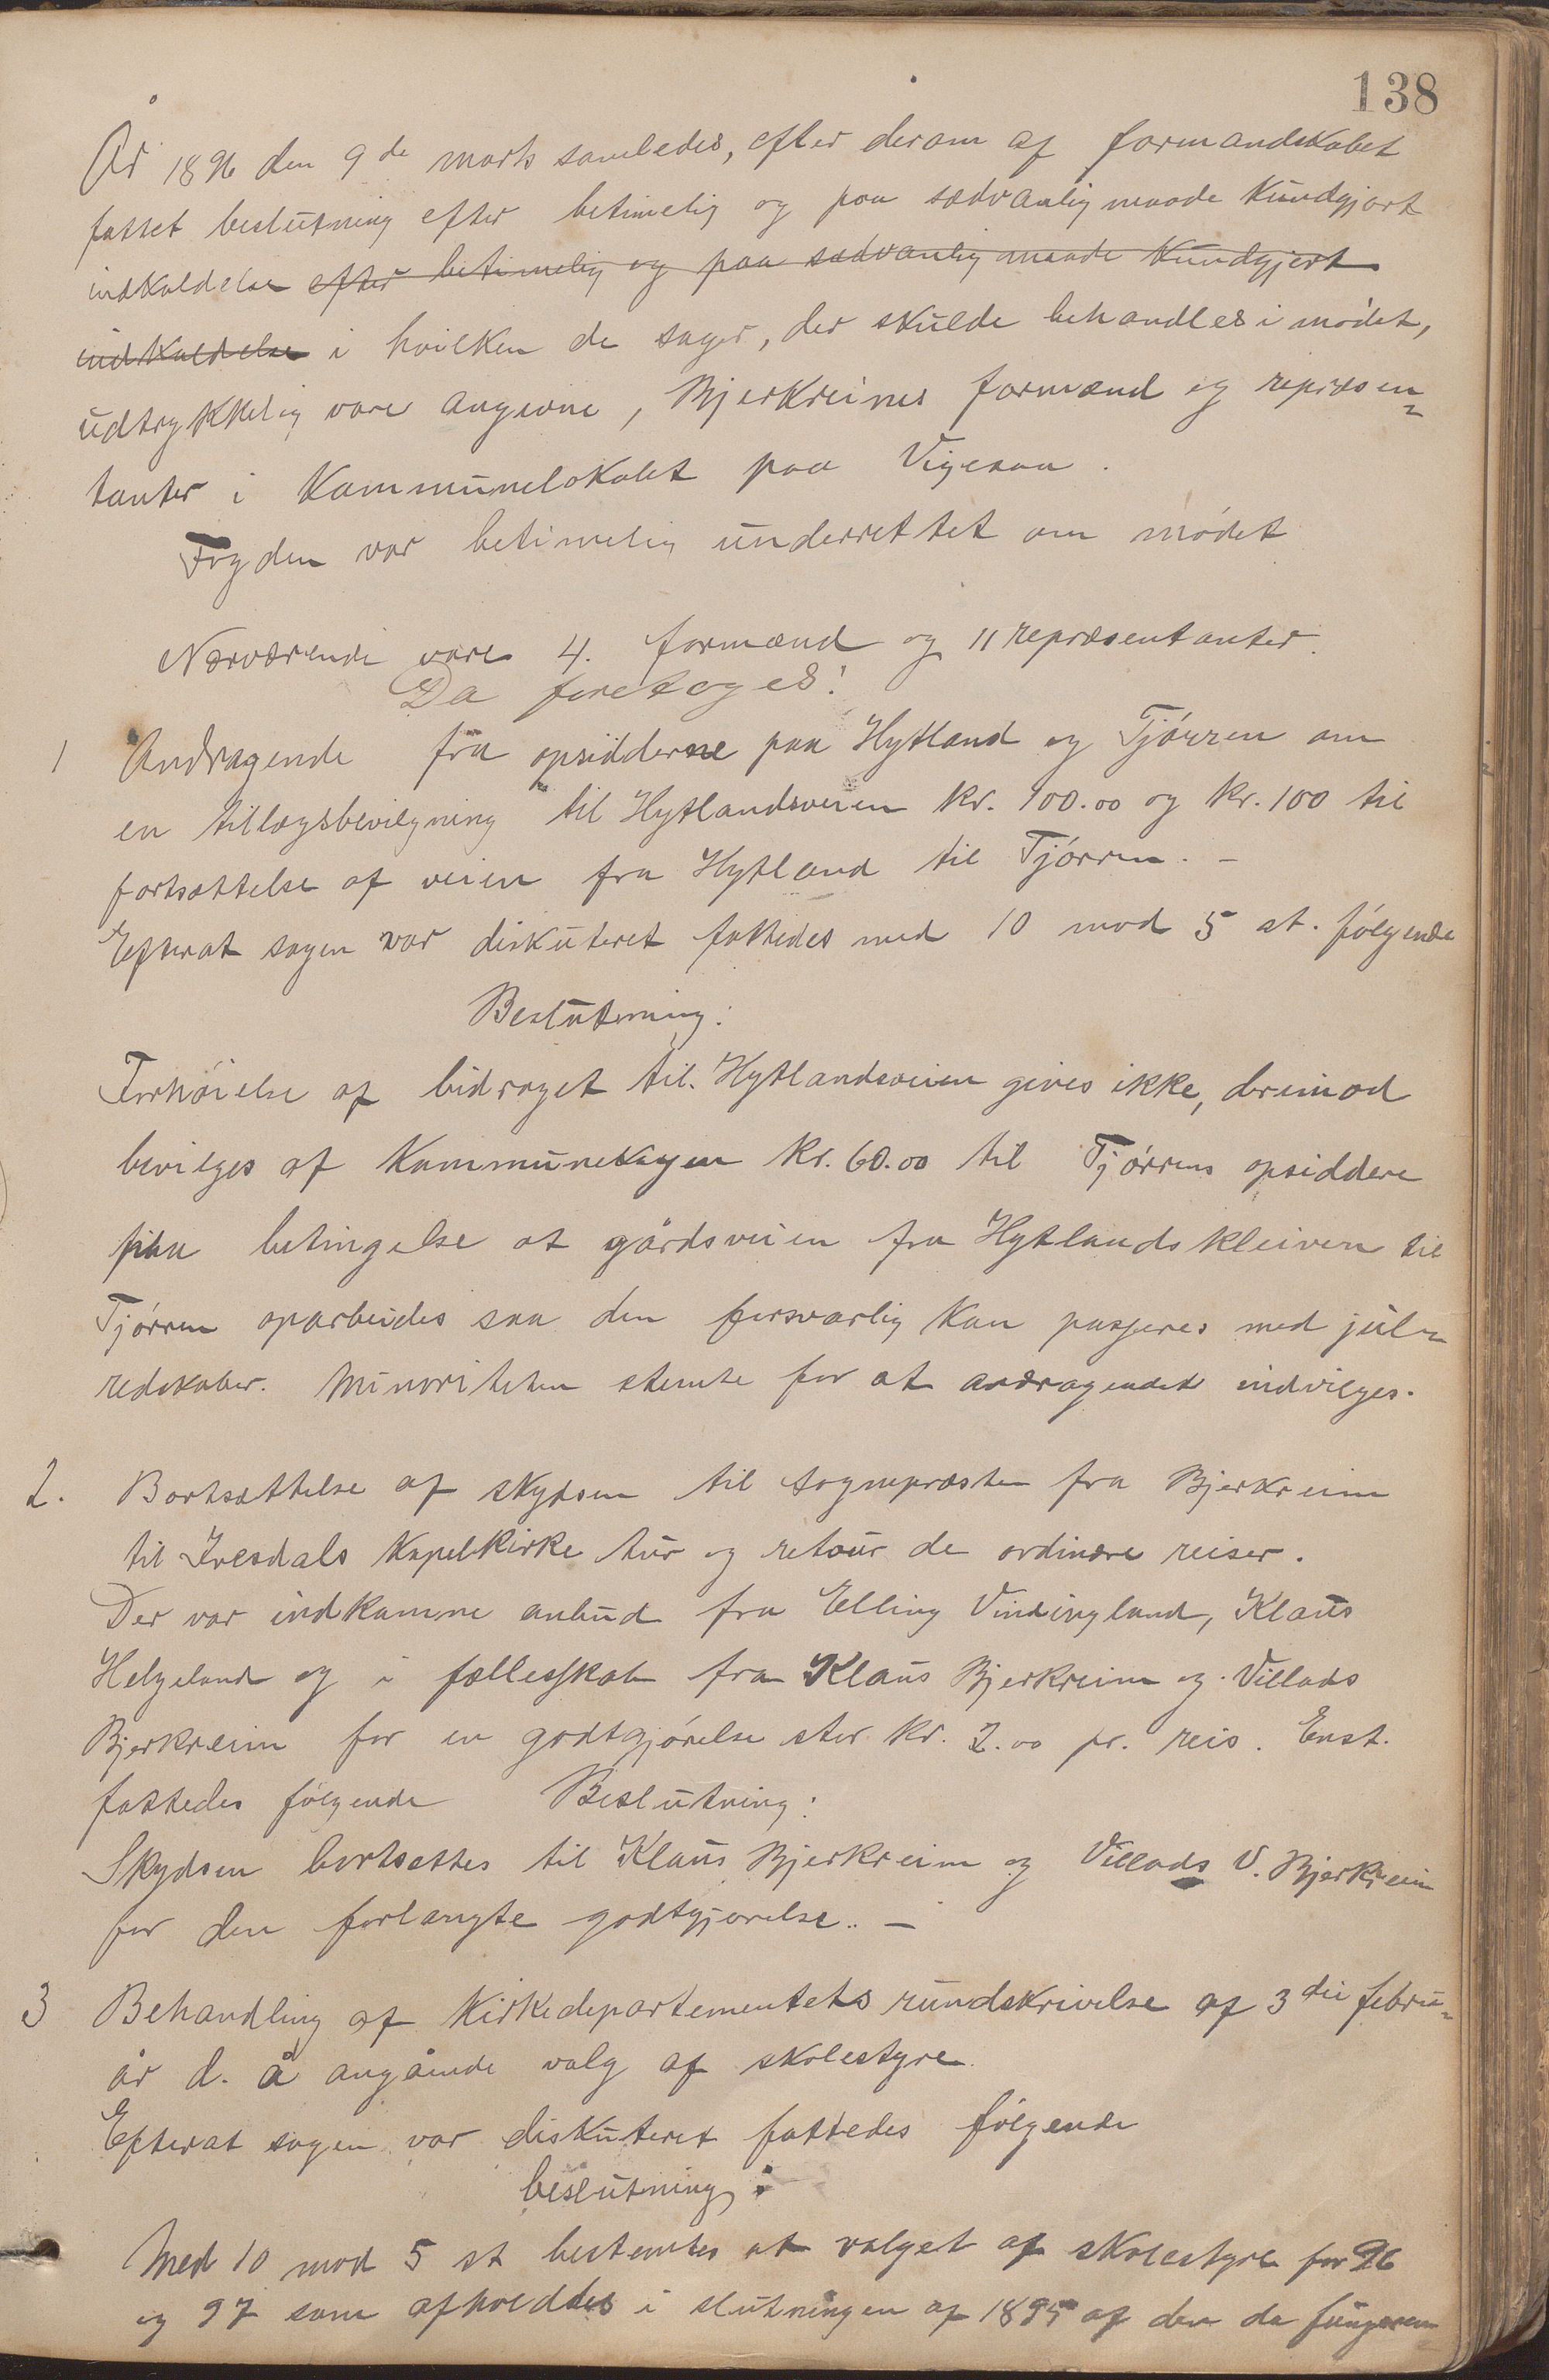 138
År 1896 den 9de marts samledes, efter derom af formandskabet
fattet beslutning efter betimelig og paa sædvanlig maade kundgjort
indkaldelse efter betimelig og paa sædvanlig maade kundgjort
indkaldelse i hvilken de sager, der skulde behandles i mødet,
udtrykkelig vare angivne, Bjerkreims formænd og repræsen-
tanter i Kommunelokalet paa Vigesaa.
Fogden var betimelig underrettet om mødet
Nærværende vare 4. formænd og 11 repræsentanter.
Da foretoges:
1 Andragende fra opsidderne paa Hytland og Tjørren om
en tillægsbevilgning til Hytlandsveien kr. 100.00 og kr. 100 til
fortsættelse af veien fra Hytland til Tjørren. –
Efterat sagen var diskuteret fattedes med 10 mod 5 st. følgende
Beslutning:
Forhøielse af bidraget til Hytlandsveien gives ikke, derimod
bevilges af Kommunekassen kr. 60.00 til Tjørrens opsiddere
paa betingelse at gårdsveien fra Hytlandskleiven til
Tjørren oparbeides saa den forsvarlig kan passeres med jul-
redskaber. Minoriteten stemte for at andragendet indvilges.
2. Bortsættelse af skydsen til sognepræsten fra Bjerkreim
til Ivesdals Kapelkirke tur og retour de ordinære reiser.
Der var indkomne anbud fra Elling Vindingland, Klaus
Helgeland og i fællesskab fra Klaus Bjerkreim og Villads
Bjerkreim for en godtgjørelse stor kr. 2.00 pr. reis. Enst.
fattedes følgende Beslutning:
Skydsen bortsættes til Klaus Bjerkreim og Villads V. Bjerkreim
for den forlangte godtgjørelse. –
3 Behandling af Kirkedepartementets rundskrivelse af 3die febru-
ar d. å angående valg af skolestyre.
Efterat sagen var diskuteret fattedes følgende
beslutning:
Med 10 mod 5 st bestemtes at valget af skolestyre for 96
og 97 som afholdtes i slutningen af 1895 af den da fungeren